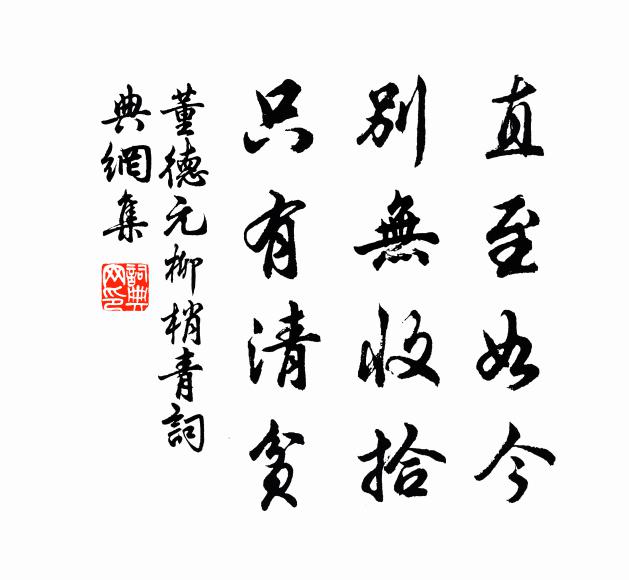 直至如今
別無收拾
只有清貧
董德元柳梢青詞
典網集
詞典网印